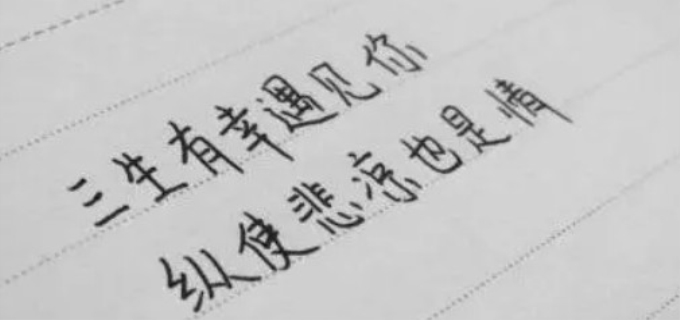 三生有幸遇见你
纵使悲凉也是情